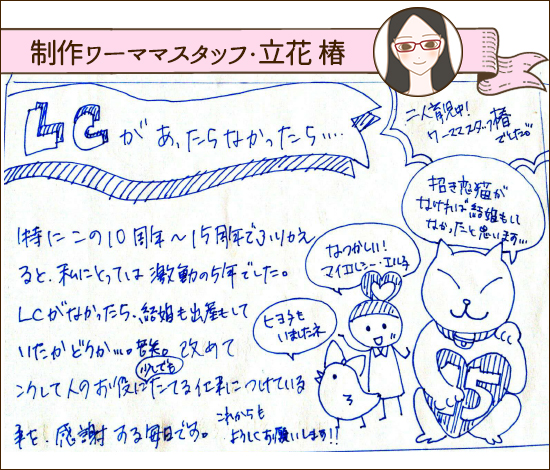 制作ワーママスタッフ・立花 椿
LCがあったらなかったら…
二人育児中!
ワーママスタッフ椿
でした。
招き恋猫が
なければ結婚もして
なかったと思います…
特にこの10周年〜15周年でふりかえ
ると、私にとっては激動の5年でした。
LCがなかったら、結婚も出産もして
いたかどうか…。苦笑。改めて
こうして人のお役に少しでもたてる仕事につけている
事を、感謝する毎日です。
これからも
よろしくお願いします!!
なつかしい!
マイエルシー・エル子
ヒヨ子も
いましたネ
15